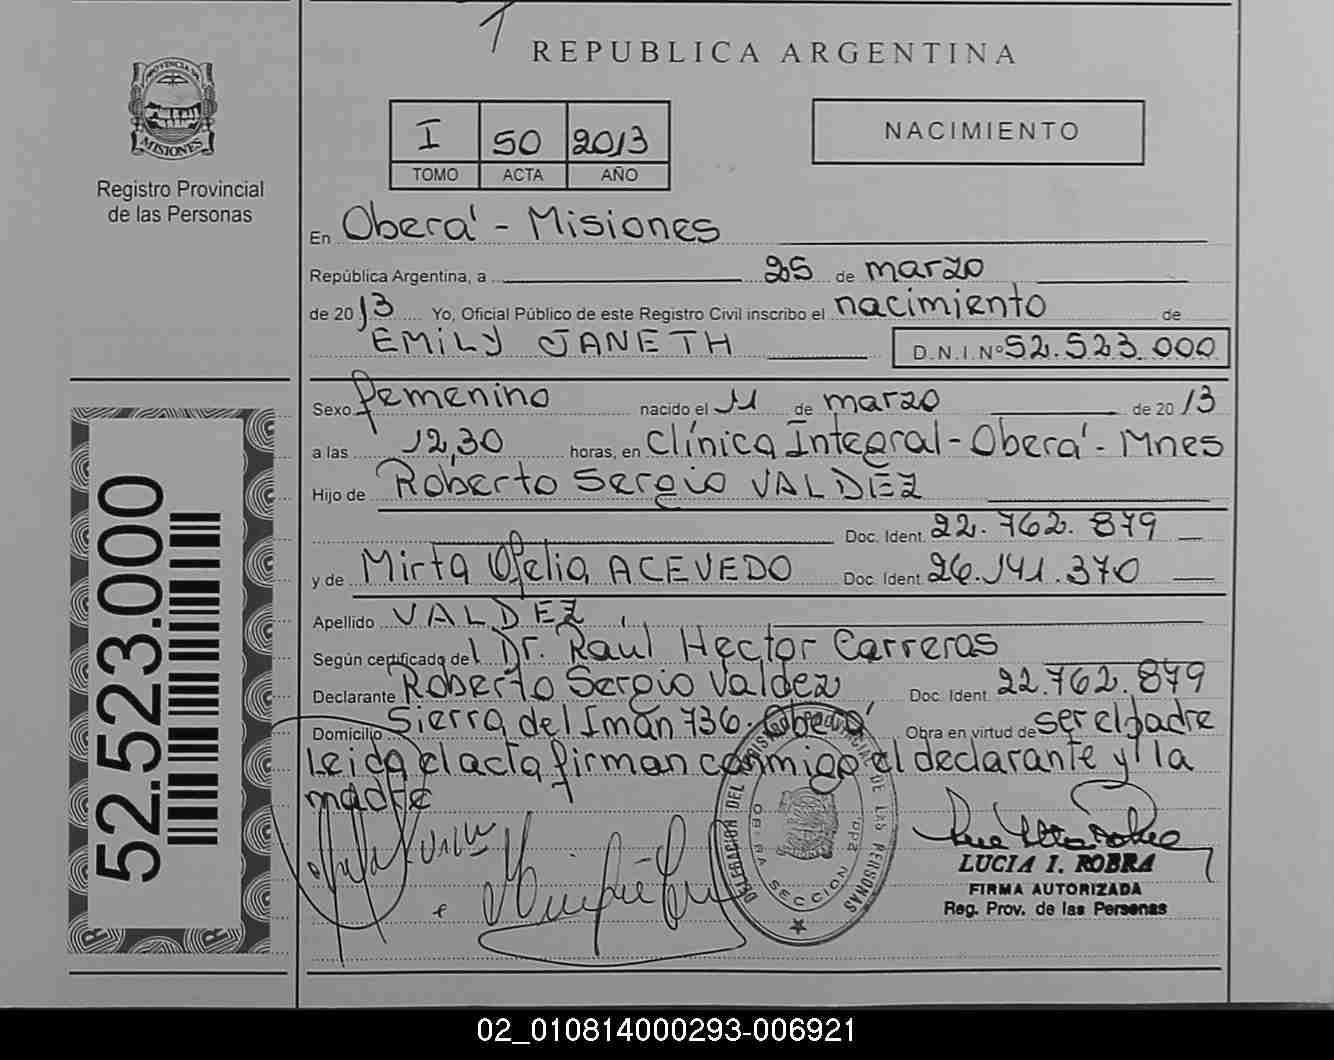 REPUBLICA ARGENTINA
PROVINCIA DE
MISIONES
Registro Provincial
de las Personas
I 50 2013
TOMO ACTA AÑO
NACIMIENTO
En Oberá - Misiones
República Argentina, a 25 de marzo
de 2013 Yo, Oficial Público de este Registro Civil inscribo el nacimiento de
EMILY JANETH D.N.I.Nº 52.523.000
Sexo femenino nacido el 11 de marzo de 2013
a las 12,30 horas, en Clínica Integral - Oberá - Mnes
Hijo de Roberto Sergio VALDEZ
Doc. Ident. 22.762.879
y de Mirta Ofelia ACEVEDO Doc. Ident. 26.141.370
Apellido VALDEZ
Según certificado del Dr. Raúl Hector Carreras
Declarante Roberto Sergio Valdez Doc. Ident. 22.762.879
Domicilio Sierra del Iman 736. Oberá Obra en virtud de ser el padre
Leida el acta firman conmigo el declarante y la
madre
52.523.000
DELEGACION DEL REGISTRO PROVINCIAL DE LAS PERSONAS
OBERA SECCION 2da.
LUCIA I. ROBRA
FIRMA AUTORIZADA
Reg. Prov. de las Personas
02_010814000293-006921